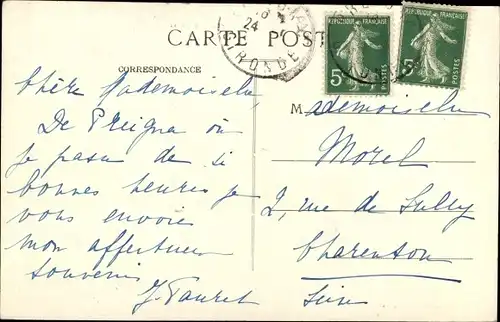 CARTE POST
CORRESPONDANCE
24
GIRONDE
REPUBLIQUE FRANÇAISE
5c
POSTES
REPUBLIQUE FRANÇAISE
5c
POSTES
Chère Mademoiselle,
De Preignac où
je passe de si
bonnes heures je
vous envoie
mon affectueux
souvenir
M ademoiselle
Morel
2, rue de Sully
Charenton
Seine